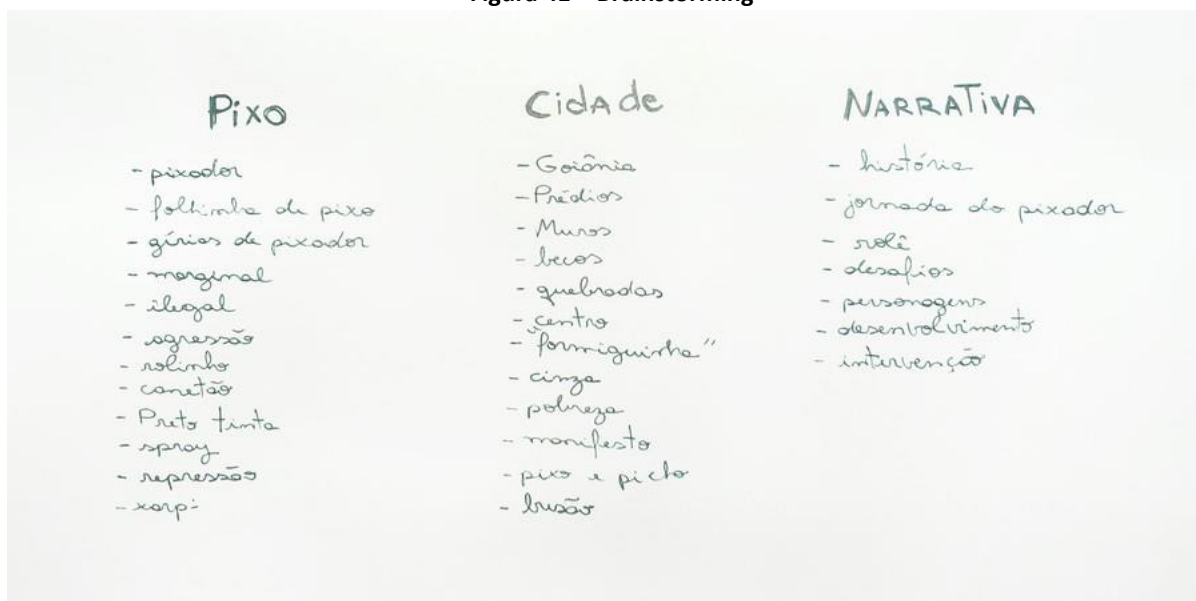 Pixo
- pixador
- folhinha de pixo
- gírias de pixador
- marginal
- ilegal
- agressão
- rolinho
- canetão
- Preto tinta
- spray
- repressão
- xarpi
Cidade
- Goiânia
- Prédios
- Muros
- becos
- quebradas
- centro
- "formiguinha"
- cinza
- pobreza
- manifesto
- pixo e picho
- busão
NARRATIVA
- história
- jornada do pixador
- rolê
- desafios
- personagens
- desenvolvimento
- intervenção